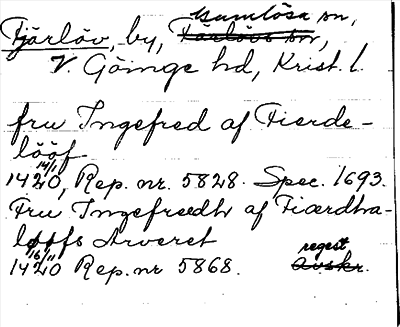 Fjärlöv, by, Gumlösa sn,
V. Göinge hd, Krist. l.
fru Ingefred af Fierde-
lööf
14/1 1420, Rep. nr. 5828. Spec. 1693.
Fru Ingefredh af Fiærdha-
løffs Arveret
16/11 1420 Rep. nr 5868. regest